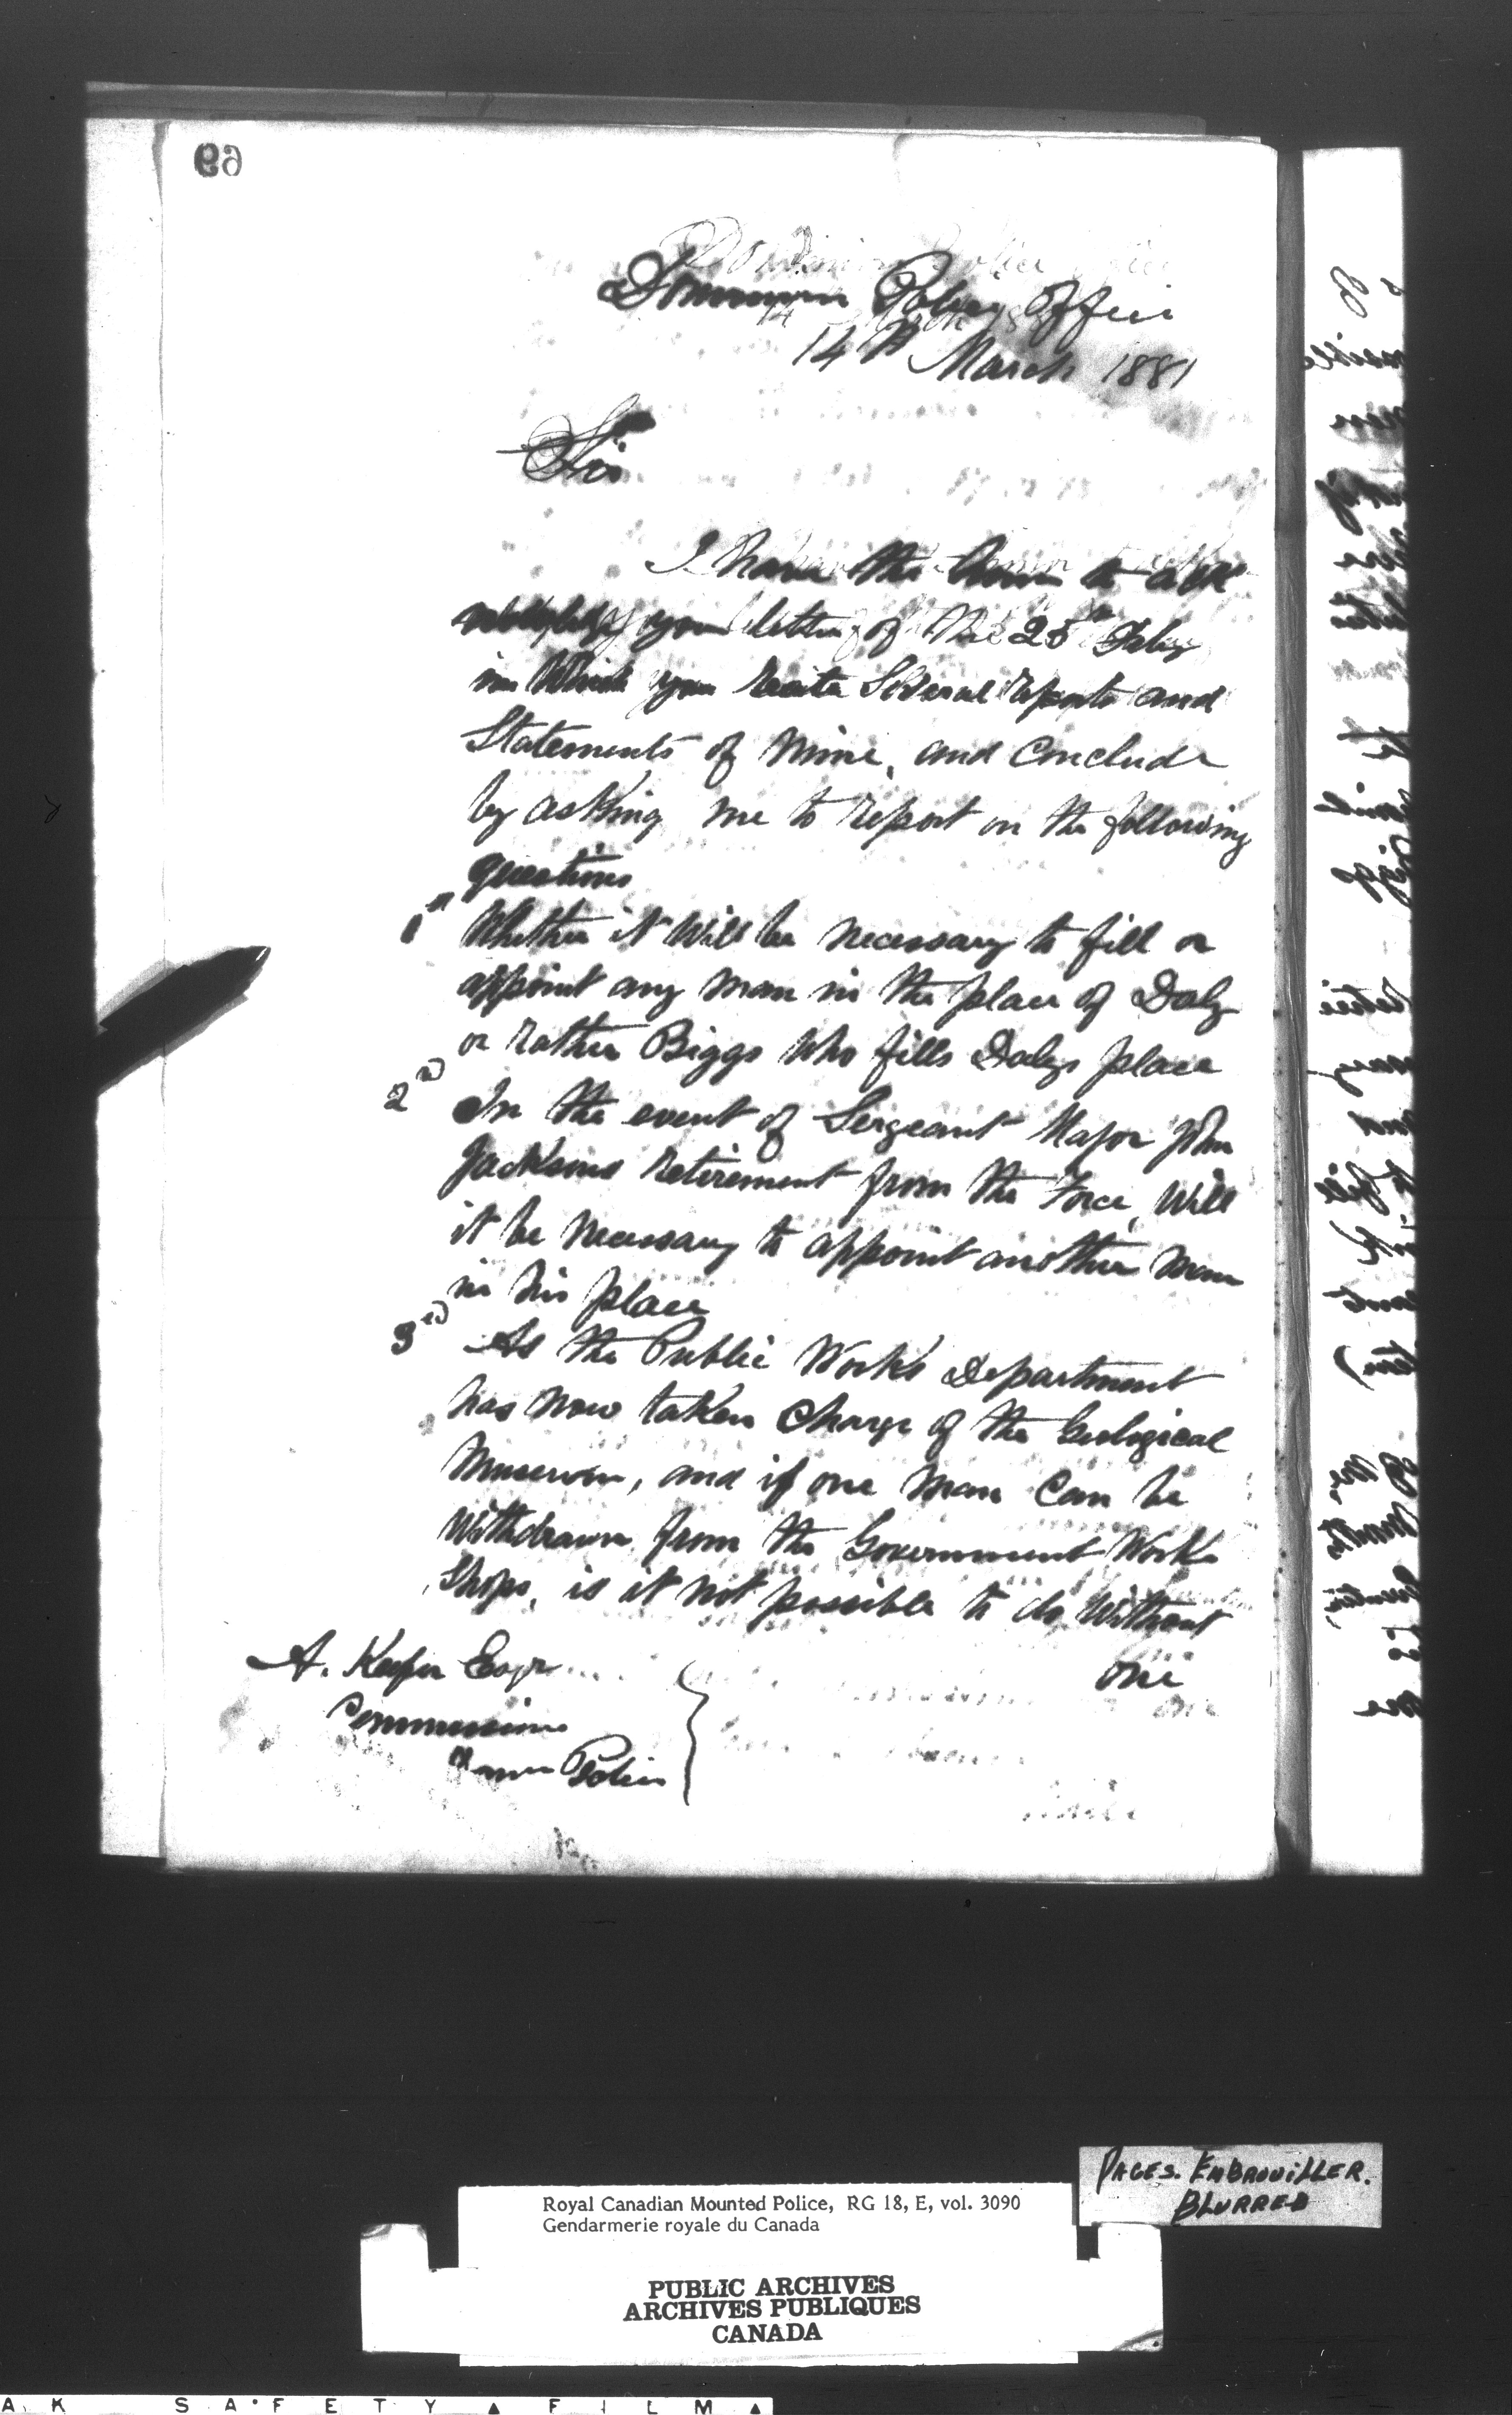 69
Dominion Police Office
14th March 1881
Sir
I have the honor to ack
nowledge your letter of the 25th Feby
in Which you recite Several reports and
Statements of Mine, and Conclude
by asking me to report on the following
questions
1st Whether it Will be necessary to fill or
appoint any man in the place of Daly
or rather Biggs Who fills Dalys place
2nd In the event of Sergeant Major John
Jacksons retirement from the Force, Will
it be necessary to appoint another man
in his place
3rd As the Public Works Department
has now taken Charge of the Geological
Museum, and if one man Can be
Withdrawn from the Government Work
Shops, is it not possible to do Without
one
A. Keefer Esqr
Commissioner
Police
PAGES. EMBROUILLER.
BLURRED
Royal Canadian Mounted Police, RG 18, E, vol. 3090
Gendarmerie royale du Canada
PUBLIC ARCHIVES
ARCHIVES PUBLIQUES
CANADA
A K SAFETY ▲ FILM ▲